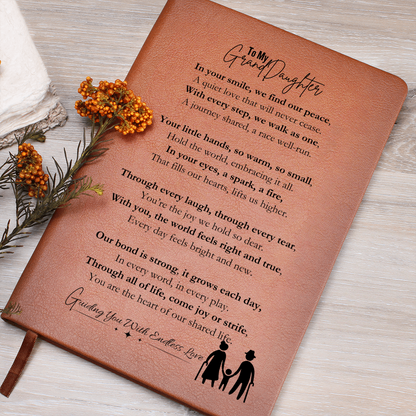 To My
GrandDaughter
In your smile, we find our peace,
A quiet love that will never cease.
With every step, we walk as one,
A journey shared, a race well-run.
Your little hands, so warm, so small,
Hold the world, embracing it all.
In your eyes, a spark, a fire,
That fills our hearts, lifts us higher.
Through every laugh, through every tear,
You're the joy we hold so dear.
With you, the world feels right and true,
Every day feels bright and new.
Our bond is strong, it grows each day,
In every word, in every play.
Through all of life, come joy or strife,
You are the heart of our shared life.
Guiding You With Endless Love